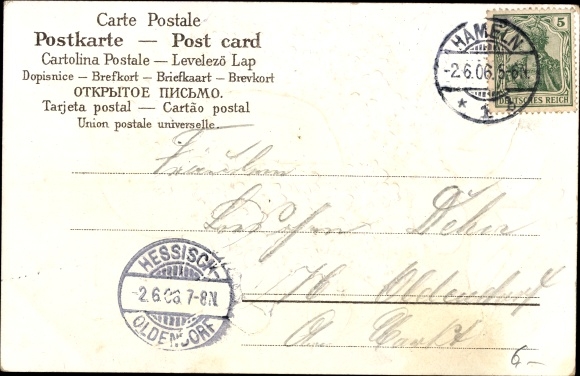 Carte Postale
Postkarte — Post card
Cartolina Postale — Levelező Lap
Dopisnice — Brefkort — Briefkaart — Brevkort
ОТКРЫТОЕ ПИСЬМО.
Tarjeta postal — Cartão postal
Union postale universelle.
HAMELN
-2.6.06. 5-6N.
* 1 b
5
DEUTSCHES REICH
Fräulein
H. Oldendorf
Am Markt
HESSISCH-
-2.6.06. 7-8N.
OLDENDORF
6-